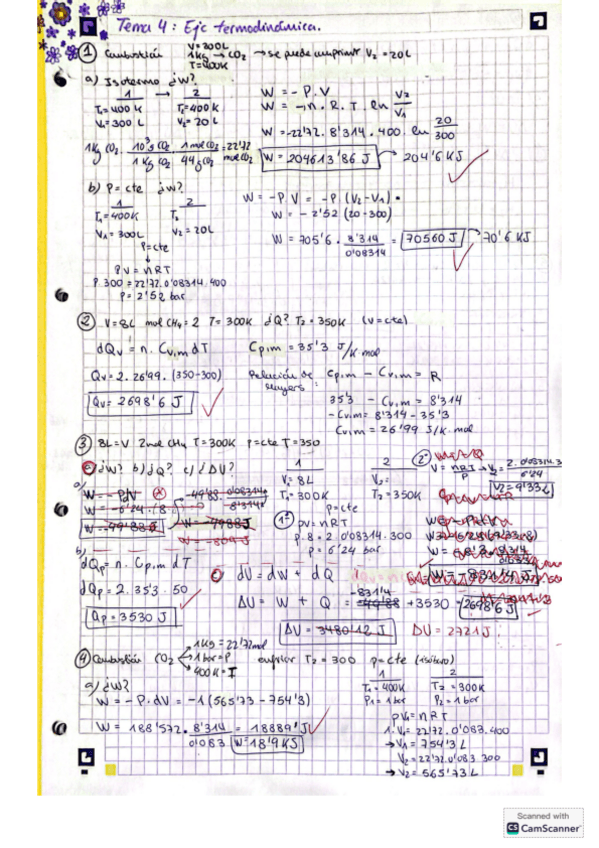 Tema 4: Ejc termodinámica.
① Combustión V=300L 1Kg → CO2 T=400K → se puede comprimir V2 = 20L
a) Isotermo ¿W?
1 → 2
T1=400K T2=400K
V1=300L V2=20L
W = -P.V
W = -n.R.T.ln V2/V1
W = -22'72.8'314.400.ln 20/300
1Kg CO2. 10^3 g CO2/1Kg CO2 . 1 mol CO2/44g CO2 = 22'72 mol CO2
W = 204613'86 J → 204'6 KJ
b) P=cte ¿W?
1 2
T1=400K T2
V1=300L V2=20L
P=cte
PV=nRT
P.300=22'72.0'08314.400
P=2'52 bar
W = -P V = -P (V2-V1)
W = -2'52 (20-300)
W = 705'6 . 8'314/0'08314 = 70560 J → 70'6 KJ
② V=8L mol CH4=2 T=300K ¿Q? T2=350K (V=cte)
dQv = n. Cv,m dT
Qv = 2.26'99.(350-300)
Qv = 2698'6 J
Cp,m = 35'3 J/K.mol
Relación de Mayers: Cp,m - Cv,m = R
35'3 - Cv,m = 8'314
-Cv,m = 8'314 - 35'3
Cv,m = 26'99 J/K.mol
③ 8L=V 2mol CH4 T=300K P=cte T=350
a) ¿W? b) ¿Q? c) ¿ΔU?
1 2
V1=8L V2=
T1=300K T2=350K
P=cte
1º PV=nRT
P.8=2.0'08314.300
P=6'24 bar
2º
V = nRT/P → V2 = 2.0'08314.3 /6'24
V2=9'33L
a)
W = -PdV
W = -6'24.(8
W = -49'88
-49'88. 0'08314/8'314
W = -4988J
W = -809J
b)
dQp = n. Cp,m dT
dQp = 2.35'3.50
Qp = 3530 J
c) dU = dW + dQ
ΔU = W + Q = -49'88 -831'4 + 3530 = 2698'6 J
ΔU = 3480'12 J
ΔU = 2721 J
④ Combustión CO2 1Kg = 22'72mol 1bar=P 400K=T enfriar T2=300 P=cte (isobaro)
a) ¿W?
W = -P.dV = -1(565'73 - 754'3)
W = 188'572. 8'314/0'083 = 18889'J
W = 18'9 KJ
1 2
T1=400K T2=300K
P1=1bar P2=1bar
PV1=nRT
1.V1=22'72.0'083.400
→ V1=754'3 L
V2=22'72.0'083.300
→ V2=565'73 L
Scanned with
CS CamScanner